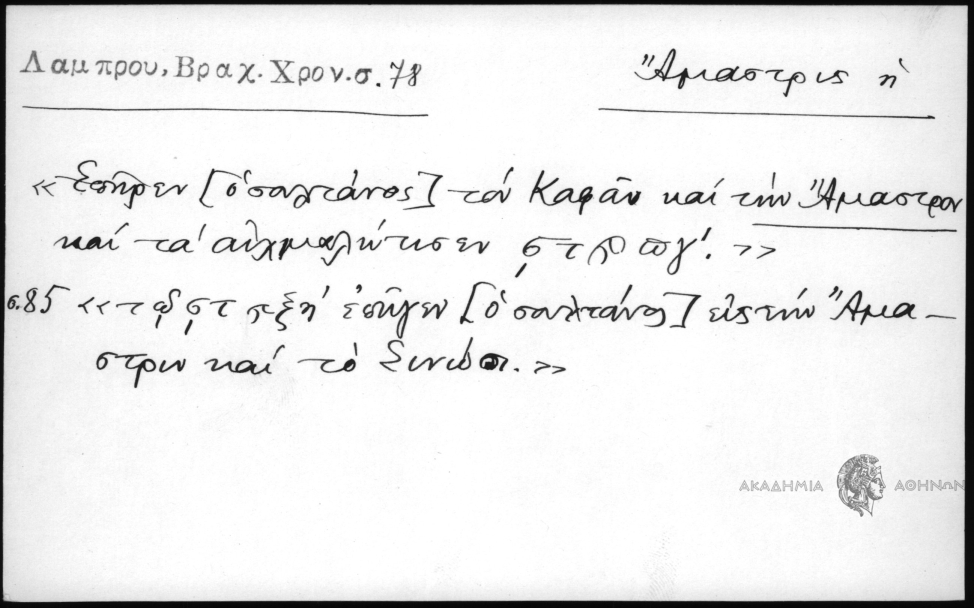 Λαμπρου, Βραχ. Χρον. σ. 78
Ἄμαστρις ἡ
«Ἐπῆρεν [ὁ σουλτάνος] τόν Καφᾶν καί τήν Ἄμαστρον
καί τά αἰχμαλώτισεν ϛ τ ϡπγ'. »
σ. 85 «τῷ ϛ τ ξη' ἐπῆγεν [ὁ σουλτάνος] εἰς τήν Ἄμα–
στριν καί τό Σινώπι. »
ΑΚΑΔΗΜΙΑ ΑΘΗΝΩΝ